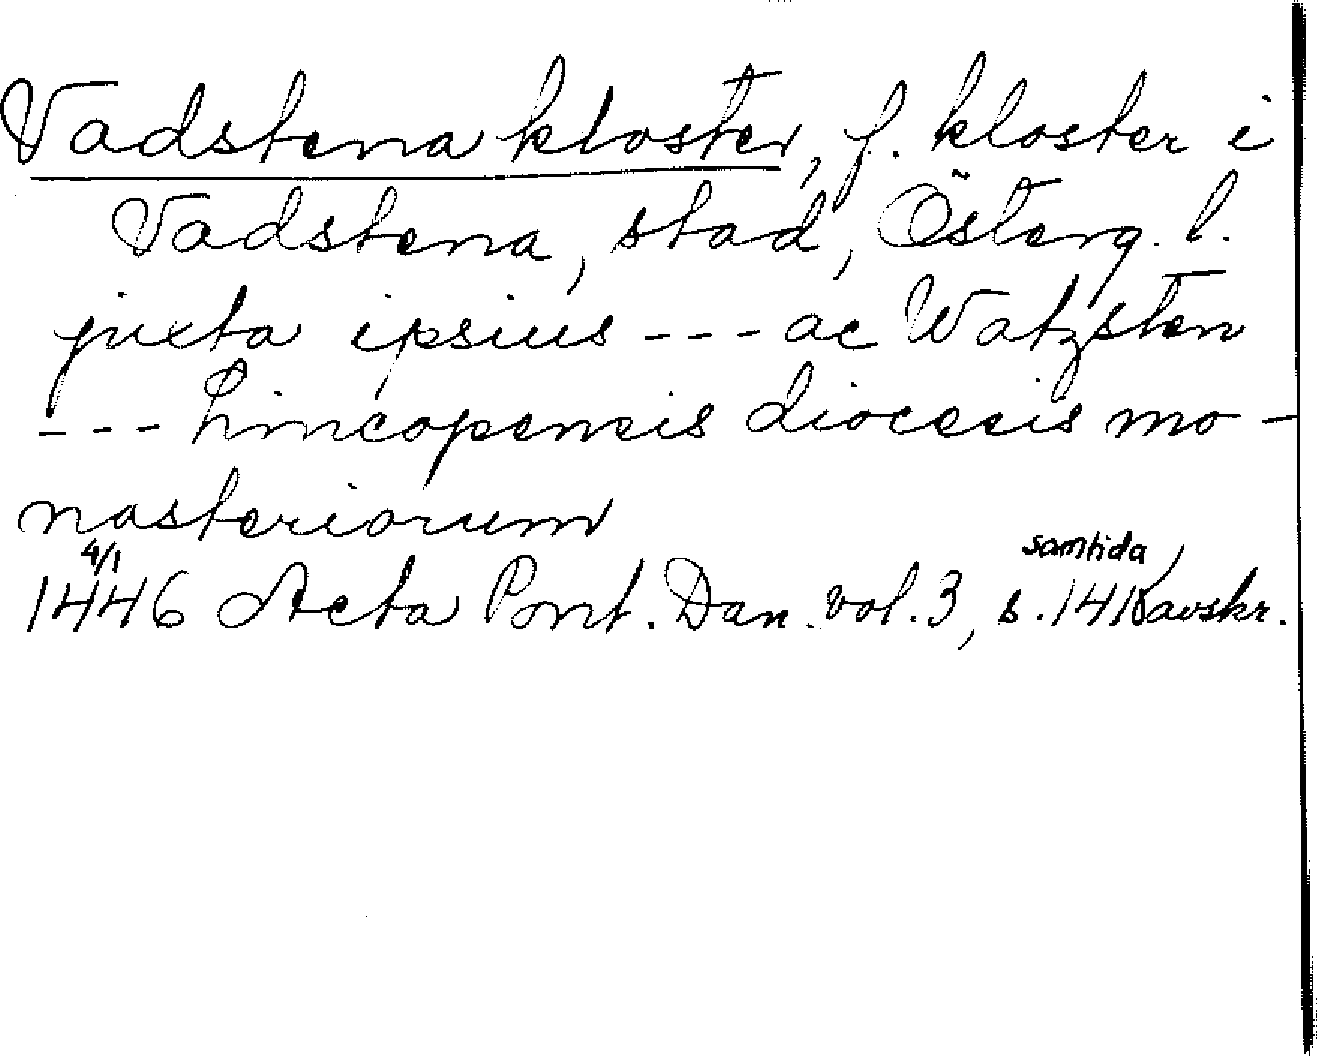 Vadstena kloster, f. kloster i
Vadstena, stad, Österg. l.
juxta ipsius --- ac Watzsten
--- Lincopensis diocesis mo-
nasteriorum
4/1 samtida
1446 Acta Pont. Dan. vol. 3, s. 141 avskr.